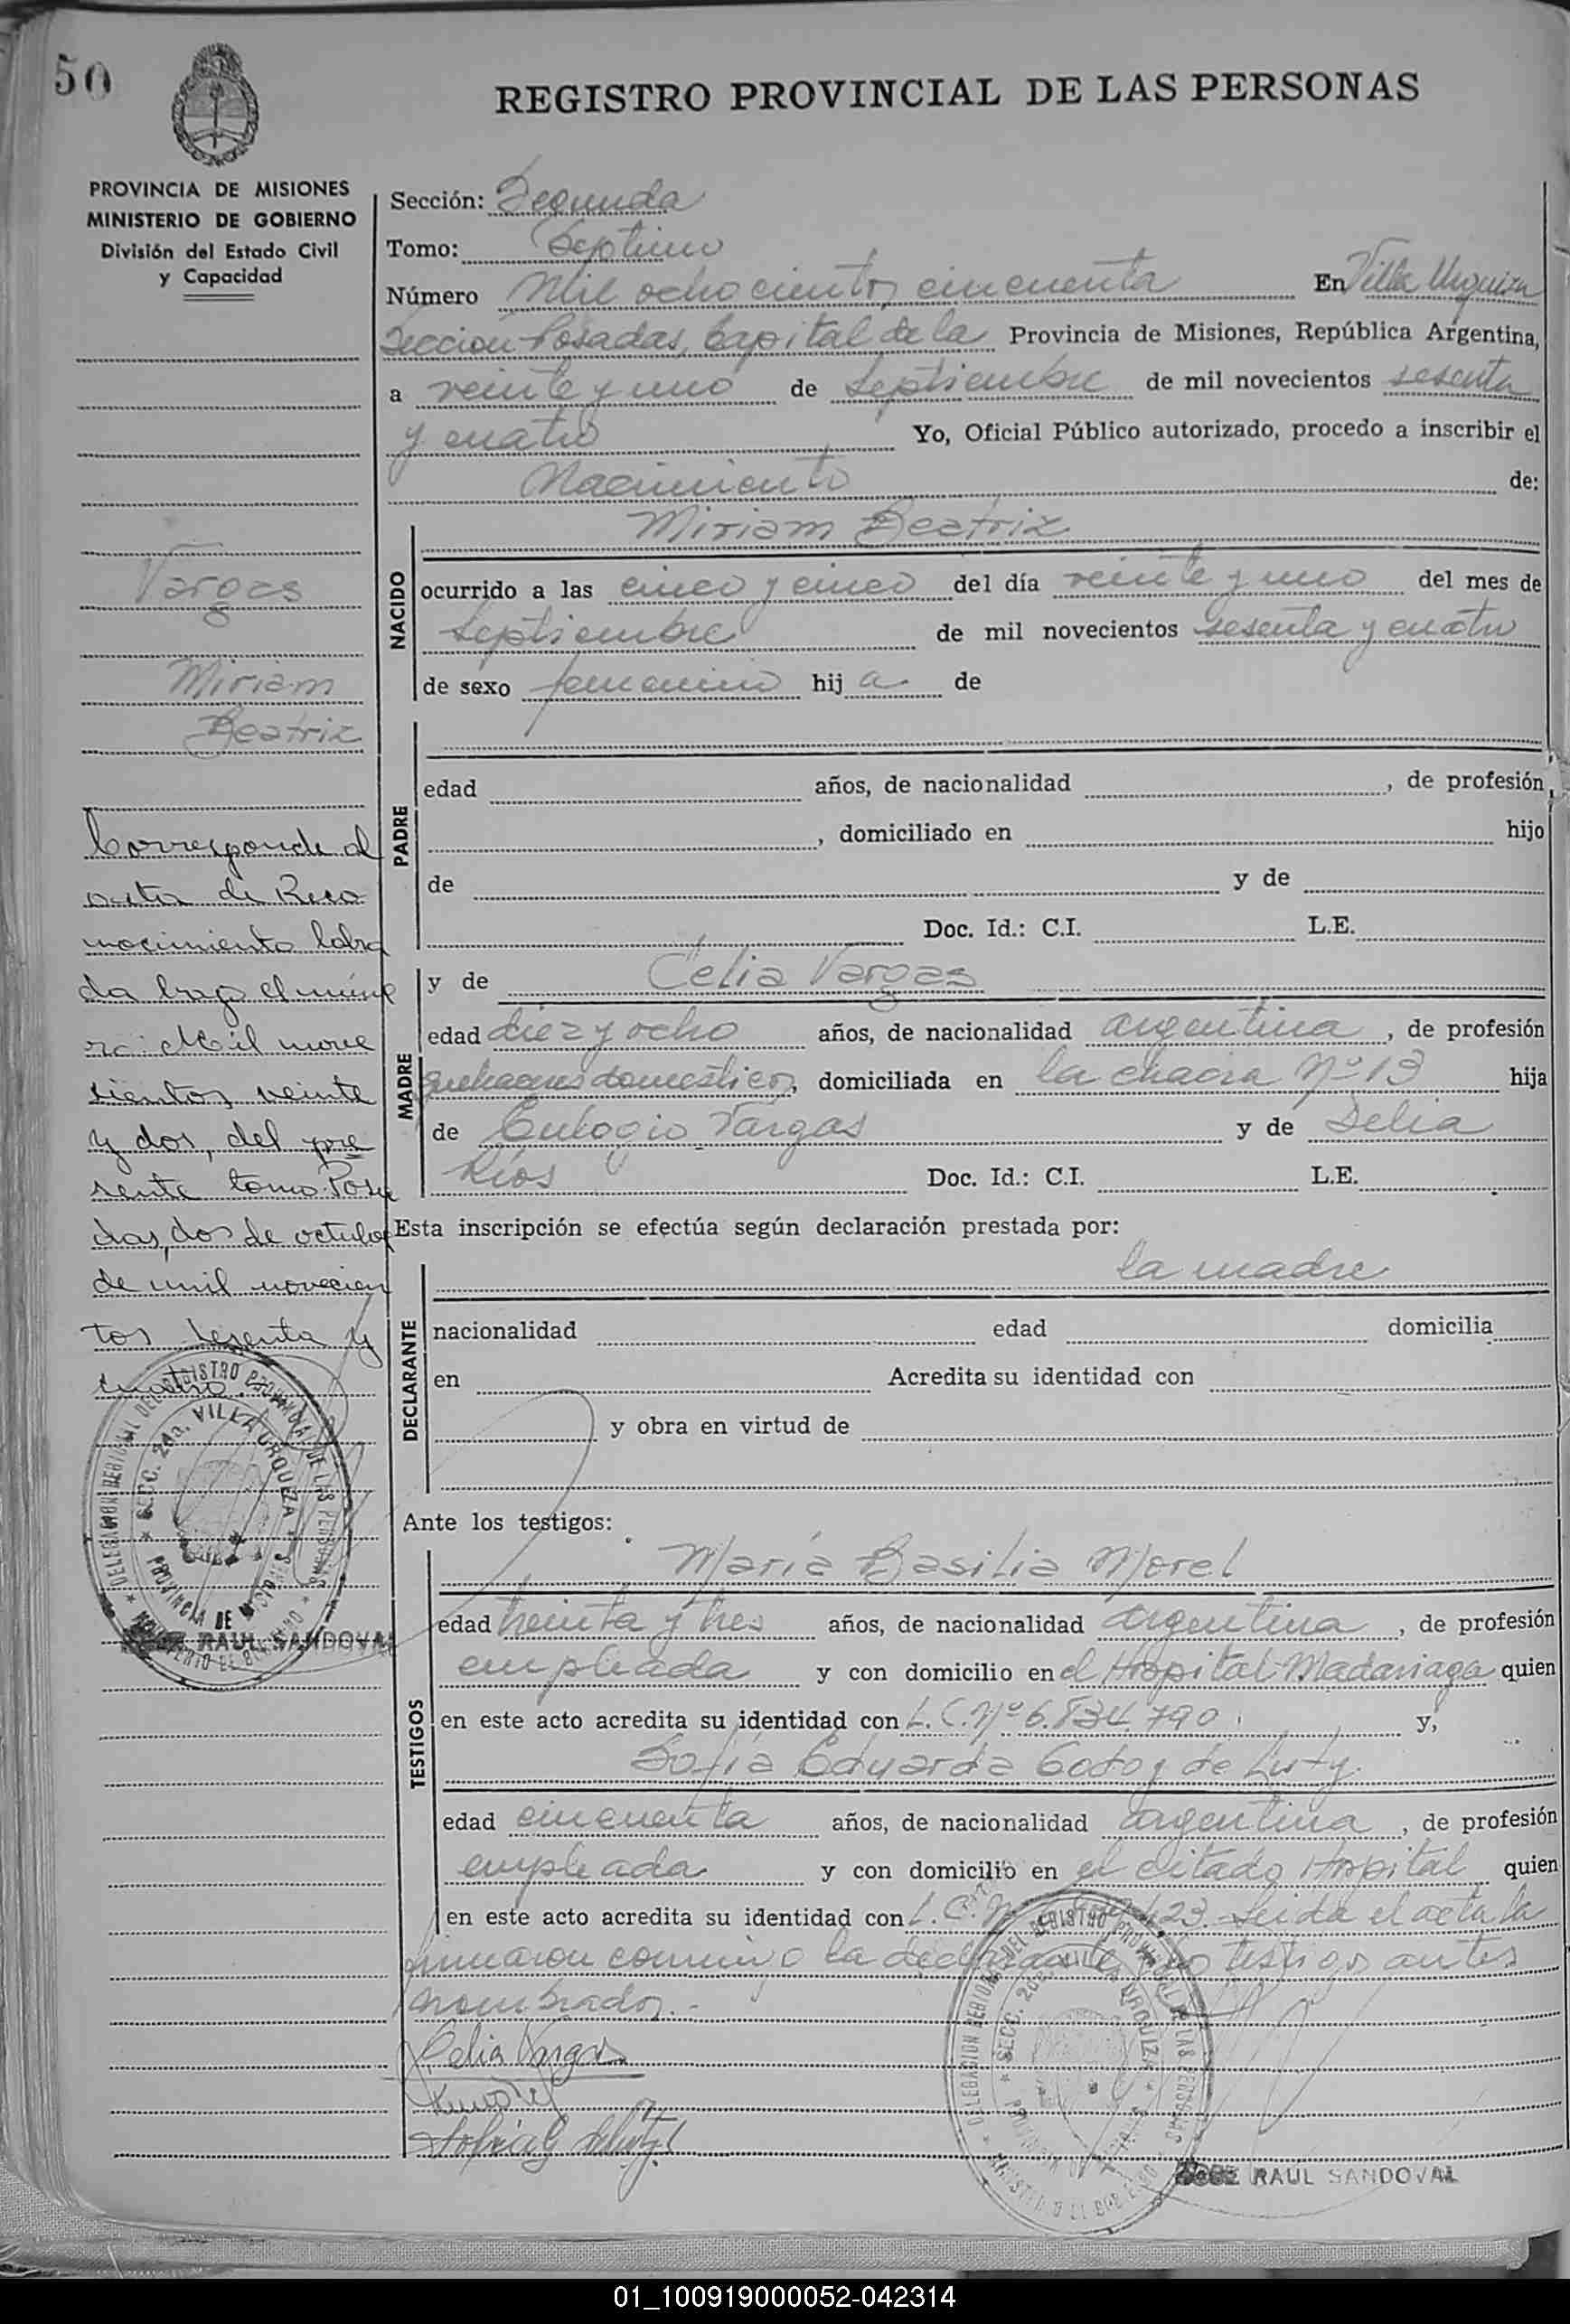 50
REGISTRO PROVINCIAL DE LAS PERSONAS
PROVINCIA DE MISIONES
MINISTERIO DE GOBIERNO
División del Estado Civil
y Capacidad
Vargas
Miriam
Beatriz
Corresponde al
acta de Reco
nocimiento labra
da bajo el núme
ro: Mil nove
cientos veinte
y dos, del pre
sente tomo. Posa
das, dos de octubre
de mil novecien
tos sesenta y
cuatro.
DELEGACION REGIONAL DEL REGISTRO PROVINCIAL DE LAS PERSONAS
SECC. 2da. VILLA URQUIZA
PROVINCIA DE MISIONES
MINISTERIO DE GOBIERNO
RAUL SANDOVAL
Sección: Segunda
Tomo: Septimo
Número Mil ochocientos cincuenta En Villa Urquiza
Sección Posadas, Capital de la Provincia de Misiones, República Argentina,
a veinte y uno de Septiembre de mil novecientos sesenta
y cuatro Yo, Oficial Público autorizado, procedo a inscribir el
Nacimiento de:
NACIDO
Miriam Beatriz
ocurrido a las cinco y cinco del día veinte y uno del mes de
Septiembre de mil novecientos sesenta y cuatro
de sexo femenino hij a de
PADRE
edad años, de nacionalidad , de profesión
, domiciliado en hijo
de y de
Doc. Id.: C.I. L.E.
MADRE
y de Celia Vargas
edad diez y ocho años, de nacionalidad argentina, de profesión
quehaceres domesticos, domiciliada en la chacra Nº 13 hija
de Eulogio Vargas y de Delia
Ríos Doc. Id.: C.I. L.E.
Esta inscripción se efectúa según declaración prestada por:
DECLARANTE
la madre
nacionalidad edad domicilia
en Acredita su identidad con
y obra en virtud de
Ante los testigos:
TESTIGOS
María Basilia Morel
edad treinta y tres años, de nacionalidad argentina, de profesión
empleada y con domicilio en el Hospital Madariaga quien
en este acto acredita su identidad con L.C. Nº 6.834.790. y,
Sofía Eduarda Godoy de
edad cincuenta años, de nacionalidad argentina, de profesión
empleada y con domicilio en el citado Hospital quien
en este acto acredita su identidad con L.C. Leida el acta la
firmaron conmigo la declarante y los testigos antes
nombrados.-
Celia Vargas
DELEGACION REGIONAL DEL REGISTRO PROVINCIAL DE LAS PERSONAS
SECC. 2da. VILLA URQUIZA
PROVINCIA DE MISIONES
MINISTERIO DE GOBIERNO
JOSE RAUL SANDOVAL
01_100919000052-042314